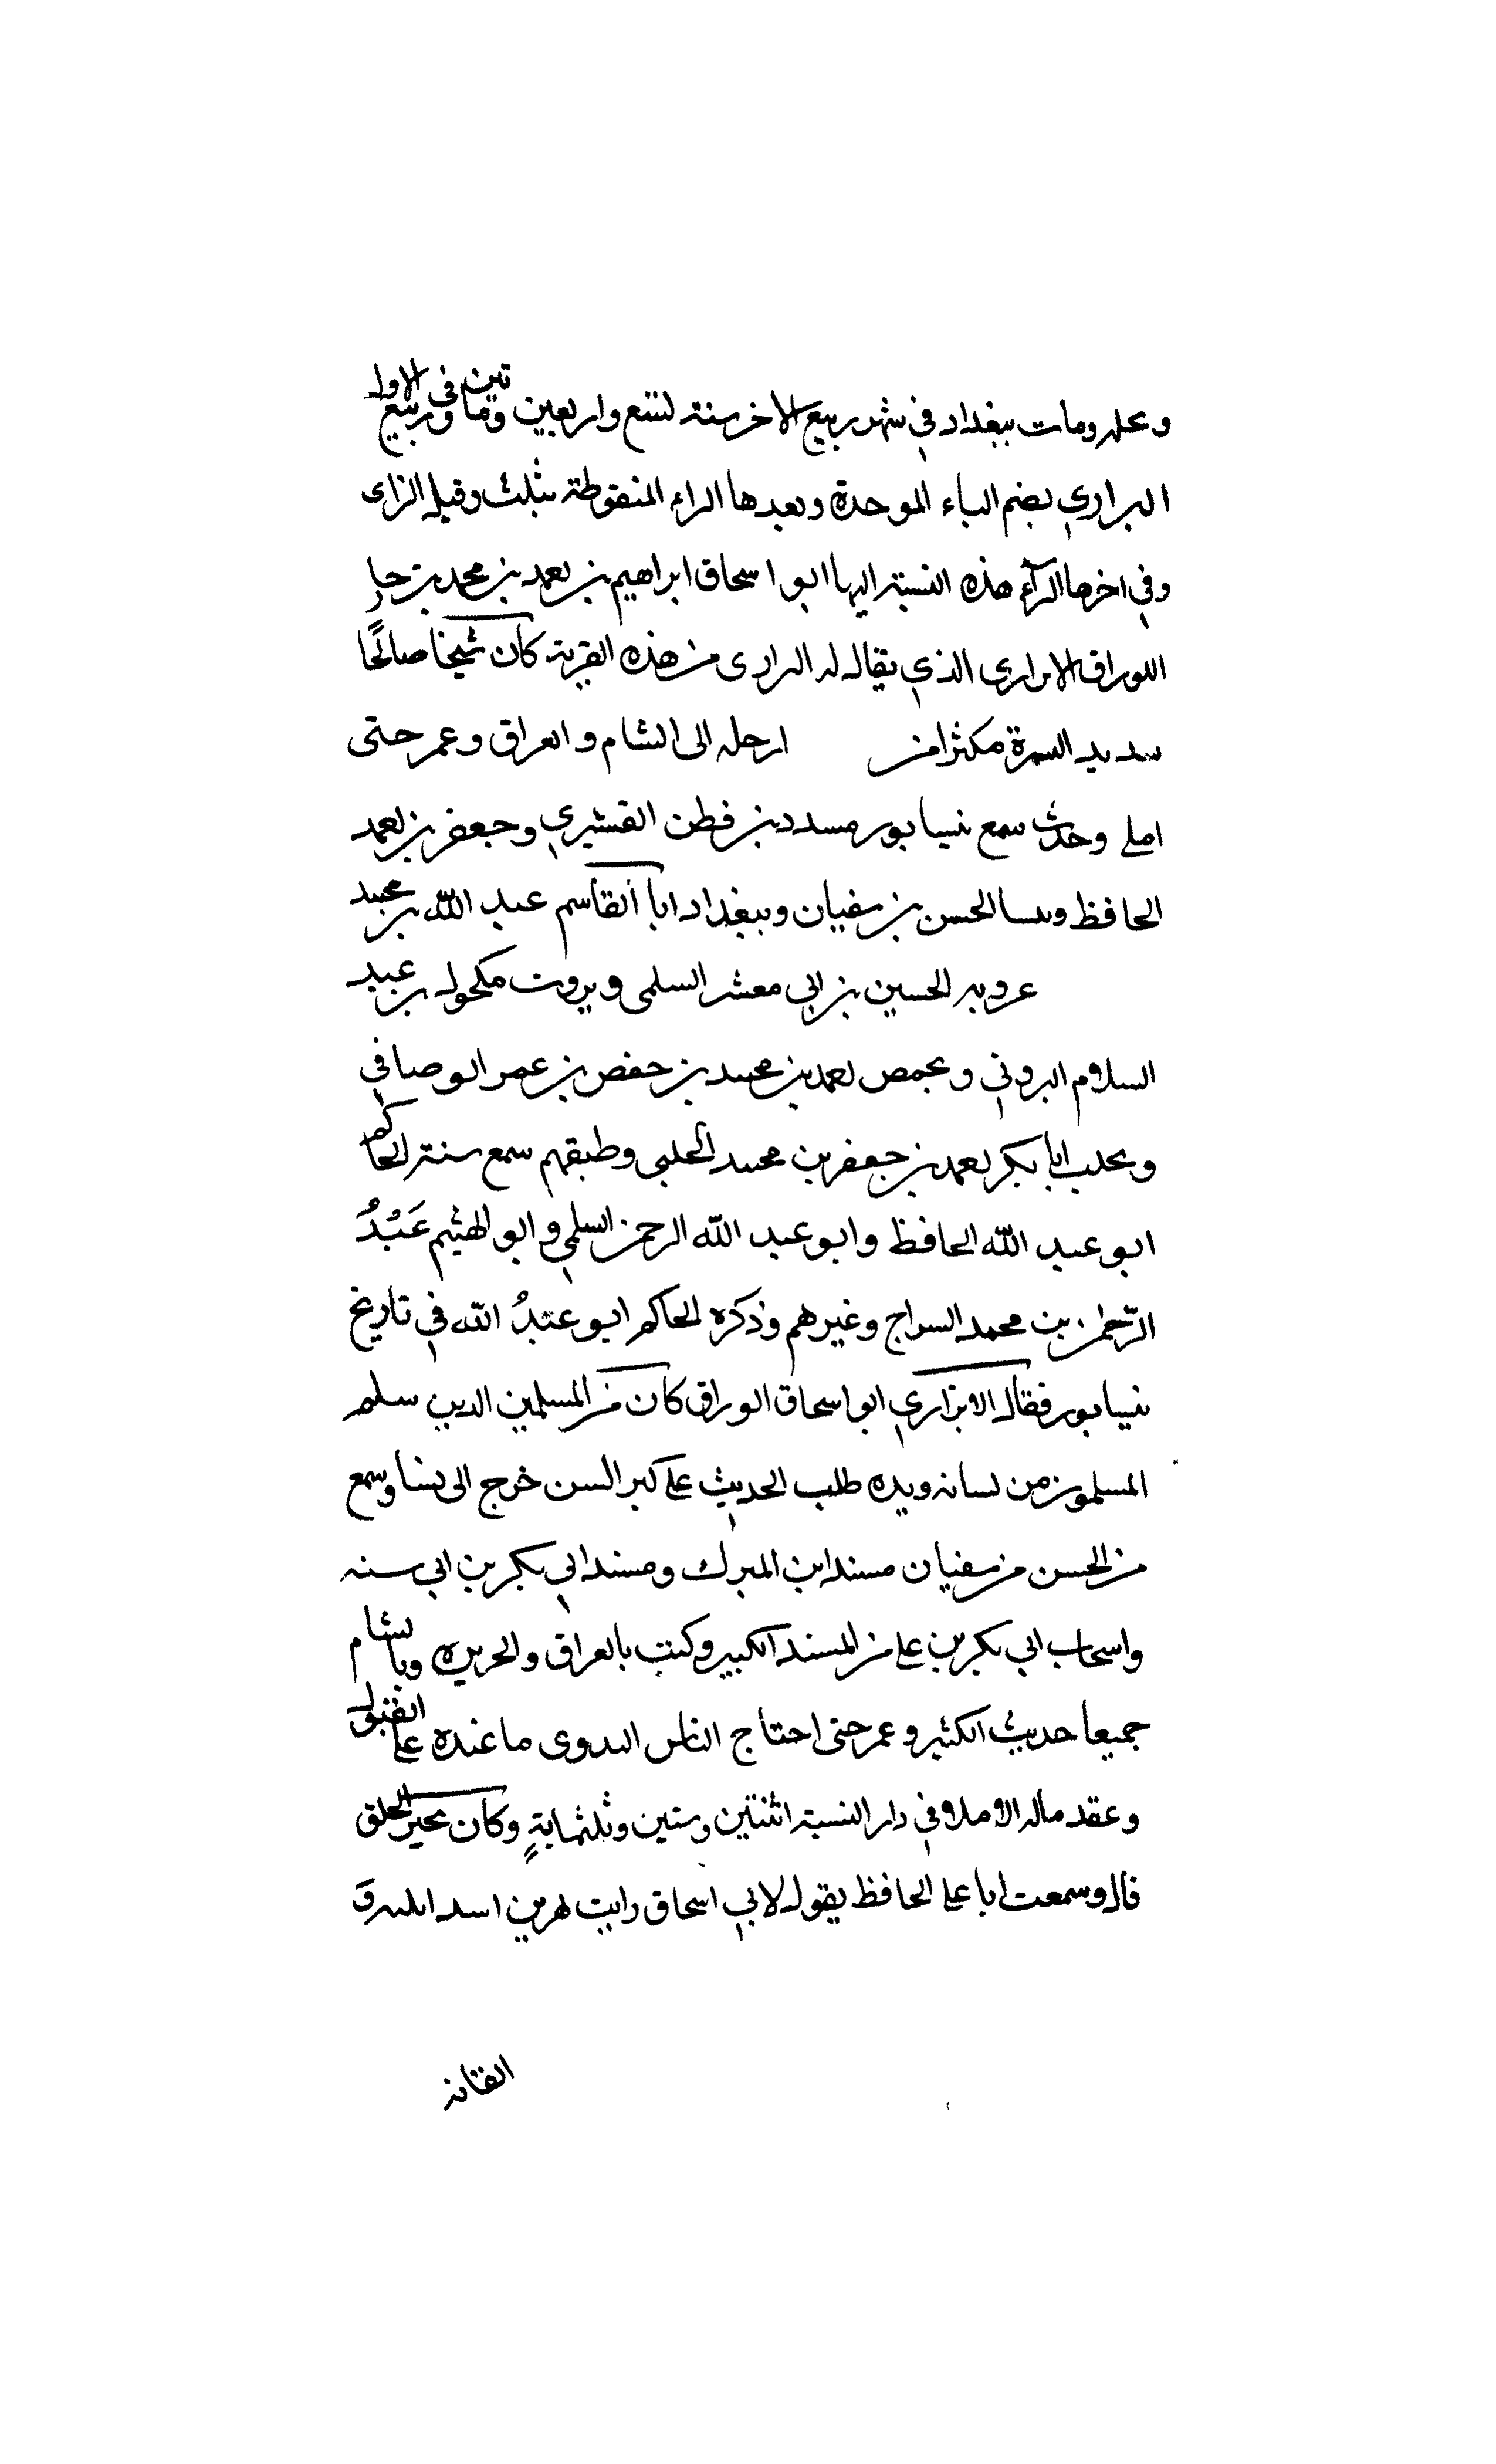 وعلم ومات ببغداد في شهر ربيع الاخر سنة تسع واربعين ومايتين وفي ربيع الاول
البراري بضم الباء الموحدة وبعدها الراء المنقوطة بثلث وقيل الزاى
وفي اخرها الرآء هذه النسبة اليها ابو اسحاق ابراهيم بن احمد بن محمد بن رجا
الوراق الابراري الذي يقال له البرارى من هذه القرية كان شيخا صالحًا
سديد السيرة مكثرا من ارحل الى الشام والعراق وعمر حتى
املى وحدث سمع نيسابور مسدد بن قطن القشيري وجعفر بن احمد
الحافظ وبنسا الحسن بن سفيان وببغداد ابا القاسم عبد الله بن محمد
عروبه الحسين بن ابي معشر السلمى وبيروت مكحول بن عبد
السلام البيروتي وبحمص احمد بن محمد بن حفص بن عمر الوصافي
وبحلب ابا بكر احمد بن جعفر بن محمد الحلبي وطبقتهم سمع سنة الحاكم
ابو عبد الله الحافظ وابو عبد الله الرحمن السلمي وابو الهثيم عَبْدُ
الرّحمن بن محمد السراج وغيرهم وذكره الحاكم ابو عبدُ الله في تاريخ
نيسابور فقال الابزاري ابو اسحاق الوراق كان من المسلمين الدين سلم
المسلمون من لسانه ويده طلب الحديث على كبر السن خرج الى نسا وسمع
من الحسن من سفيان مسند ابن المبرك ومسند ابي بكر بن ابي سنه
واسحاب ابي بكر بن على من المسند الكبير وكتب بالعراق والجزيره وبالشام
جميعا حديث الكثير وعمر حتى احتاج الناس اليه وروى ما عنده على القبول
وعقد ماله الاملاء في دار السنة اثنتين وستين وثلثمايةٍ وكان يحير الخلق
قال وسمعت ابا على الحافظ يقول لابي اسحاق رايت لهر بن اسد